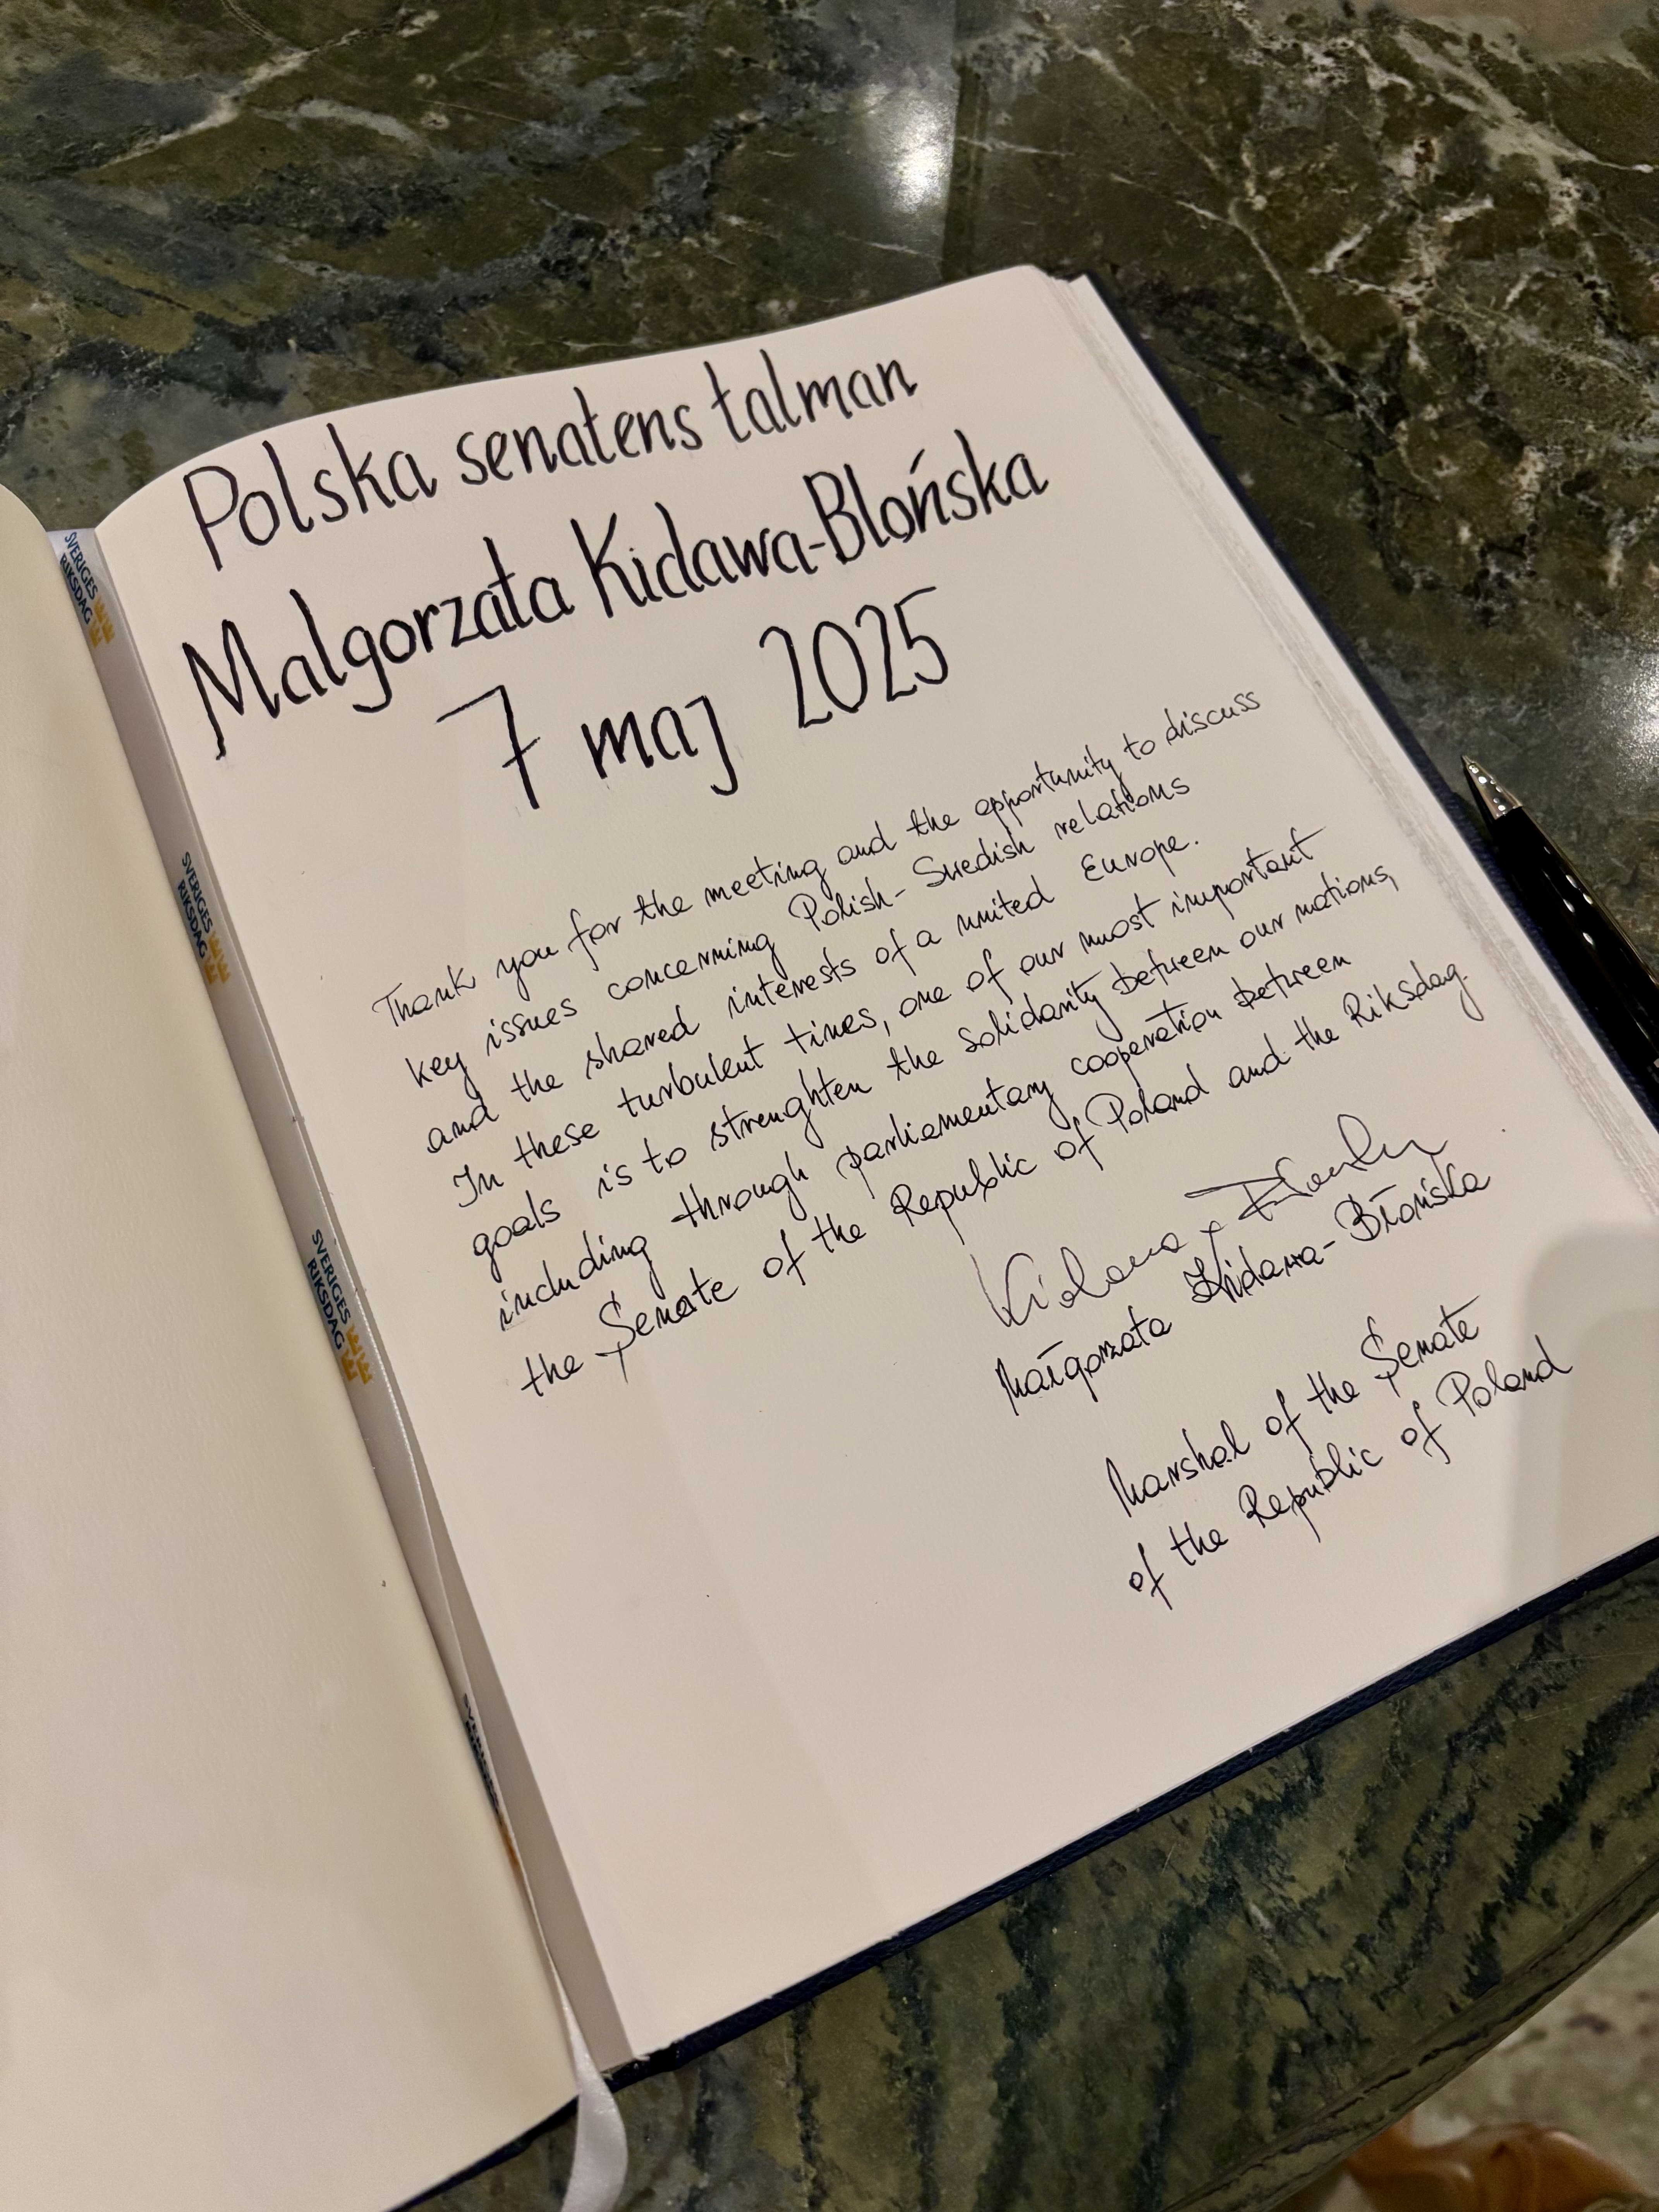 Polska senatens talman
Malgorzata Kidawa-Blońska
7 maj 2025
Thank you for the meeting and the opportunity to discuss
key issues concerning Polish-Swedish relations
and the shared interests of a united Europe.
In these turbulent times, one of our most important
goals is to strenghten the solidarity between our nations,
including through parliamentary cooperation between
the Senate of the Republic of Poland and the Riksdag.
Małgorzata Kidawa-Błońska
Marshal of the Senate
of the Republic of Poland
SVERIGES
RIKSDAG
SVERIGES
RIKSDAG
SVERIGES
RIKSDAG